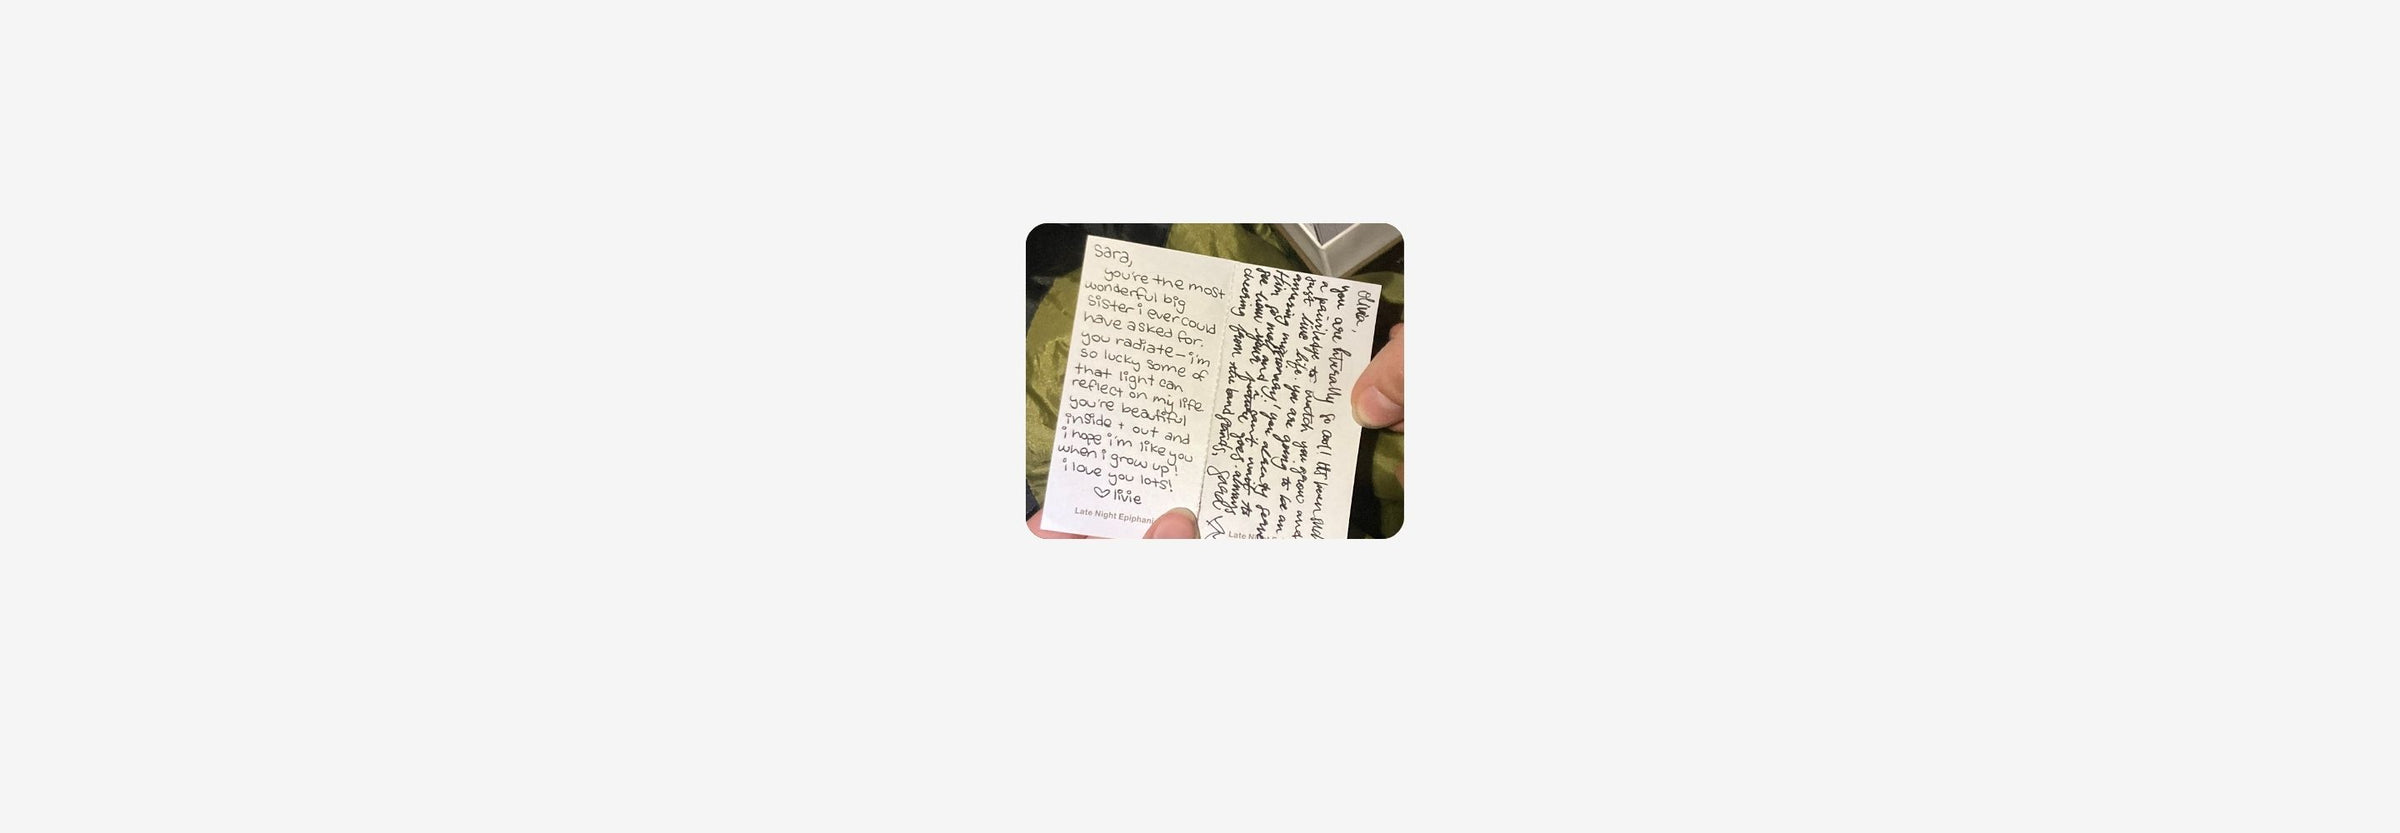 sara,
you're the most
wonderful big
sister i ever could
have asked for.
you radiate – i'm
so lucky some of
that light can
reflect on my life.
you're beautiful
inside + out and
i hope i'm like you
when i grow up!
i love you lots!
♡ livie
Late Night Epiphani
olivia,
you are literally so cool! it's been such
a privilege to watch you grow and
just live life. you are going to be an
amazing missionary! you already serve
Him so much and i can't wait to
see how your goes. always
cheering from the bandstands,
sara
Late N